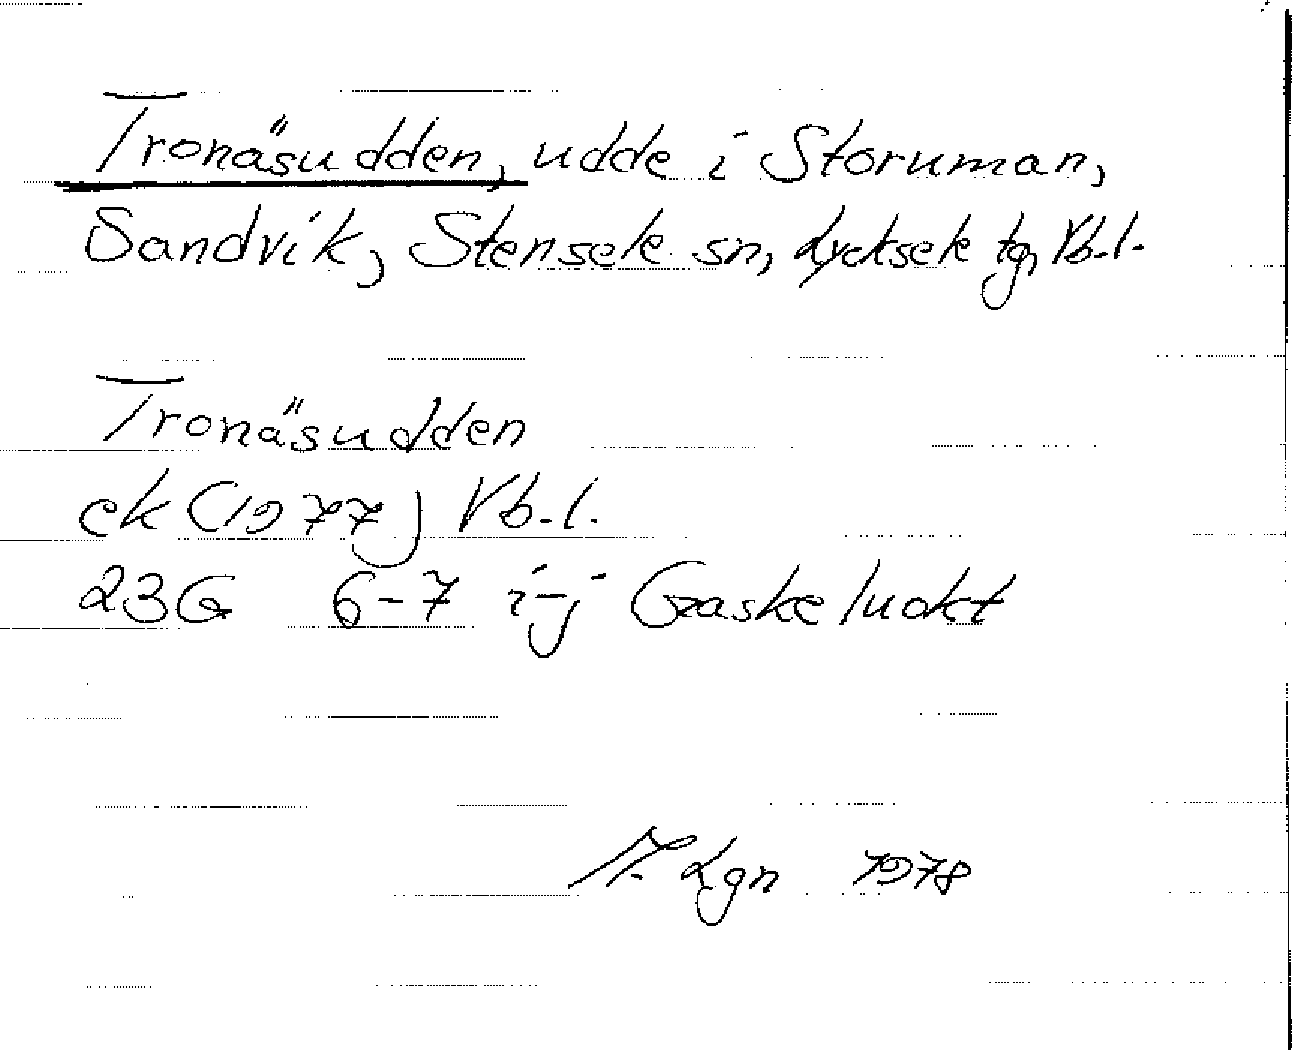 Tronäsudden, udde i Storuman,
Sandvik, Stensele sn, Lycksele tg, Vb.l.
Tronäsudden
ek (1977) Vb.l.
23G 6-7 i-j Gaskeluokt
Lgn 1978